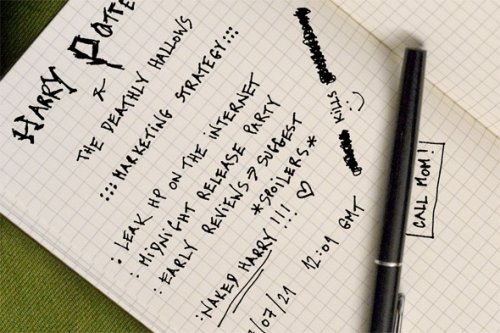 HARRY POTTE
&
THE DEATHLY HALLOWS
:::MARKETING STRATEGY:::
: LEAK HP ON THE INTERNET
: MIDNIGHT RELEASE PARTY
: EARLY REVIEWS → SUGGEST
*SPOILERS*
:NAKED HARRY!!! ♡
/07/21 12:01 GMT
KILLS
:)
CALL MOM!